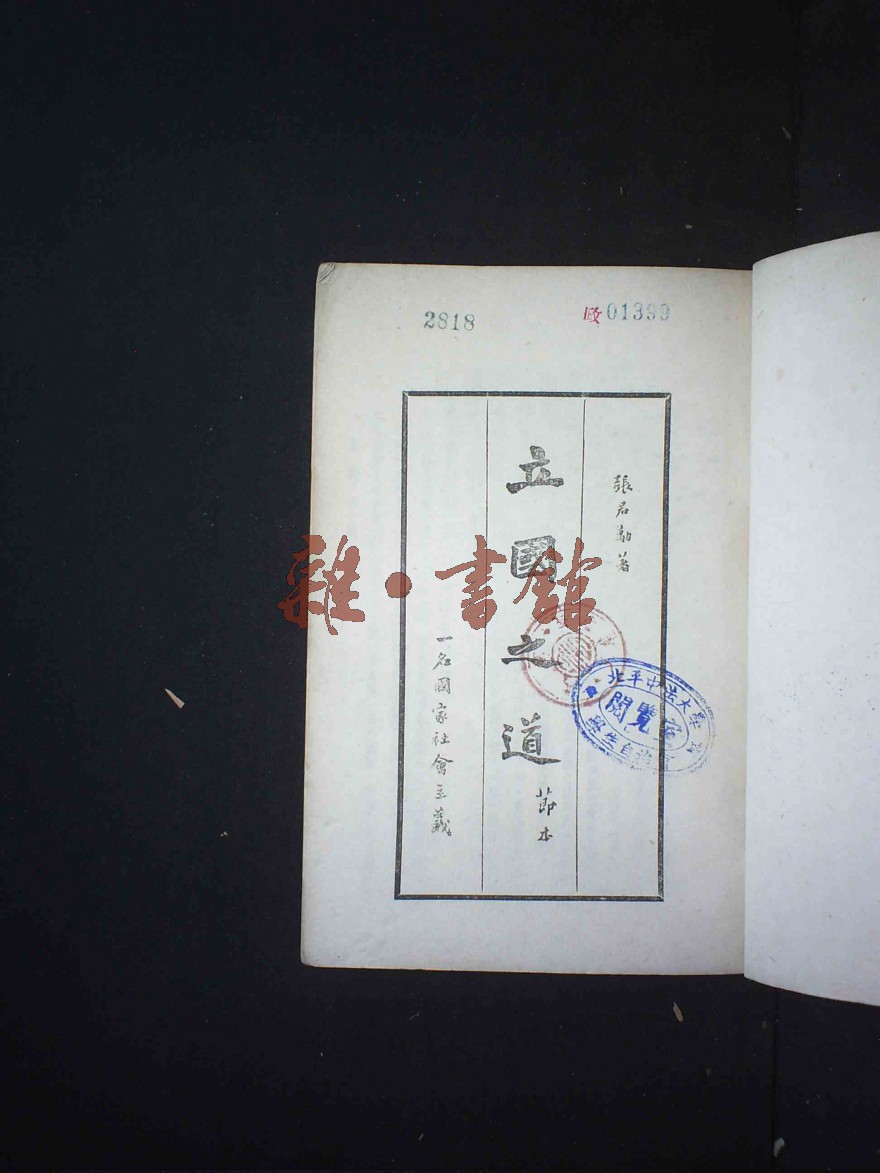 2818
政 01399
張君勱著
立國之道 節本
一名國家社會主義
雜·書館
北平中法大學
閱覽室
學生自治會